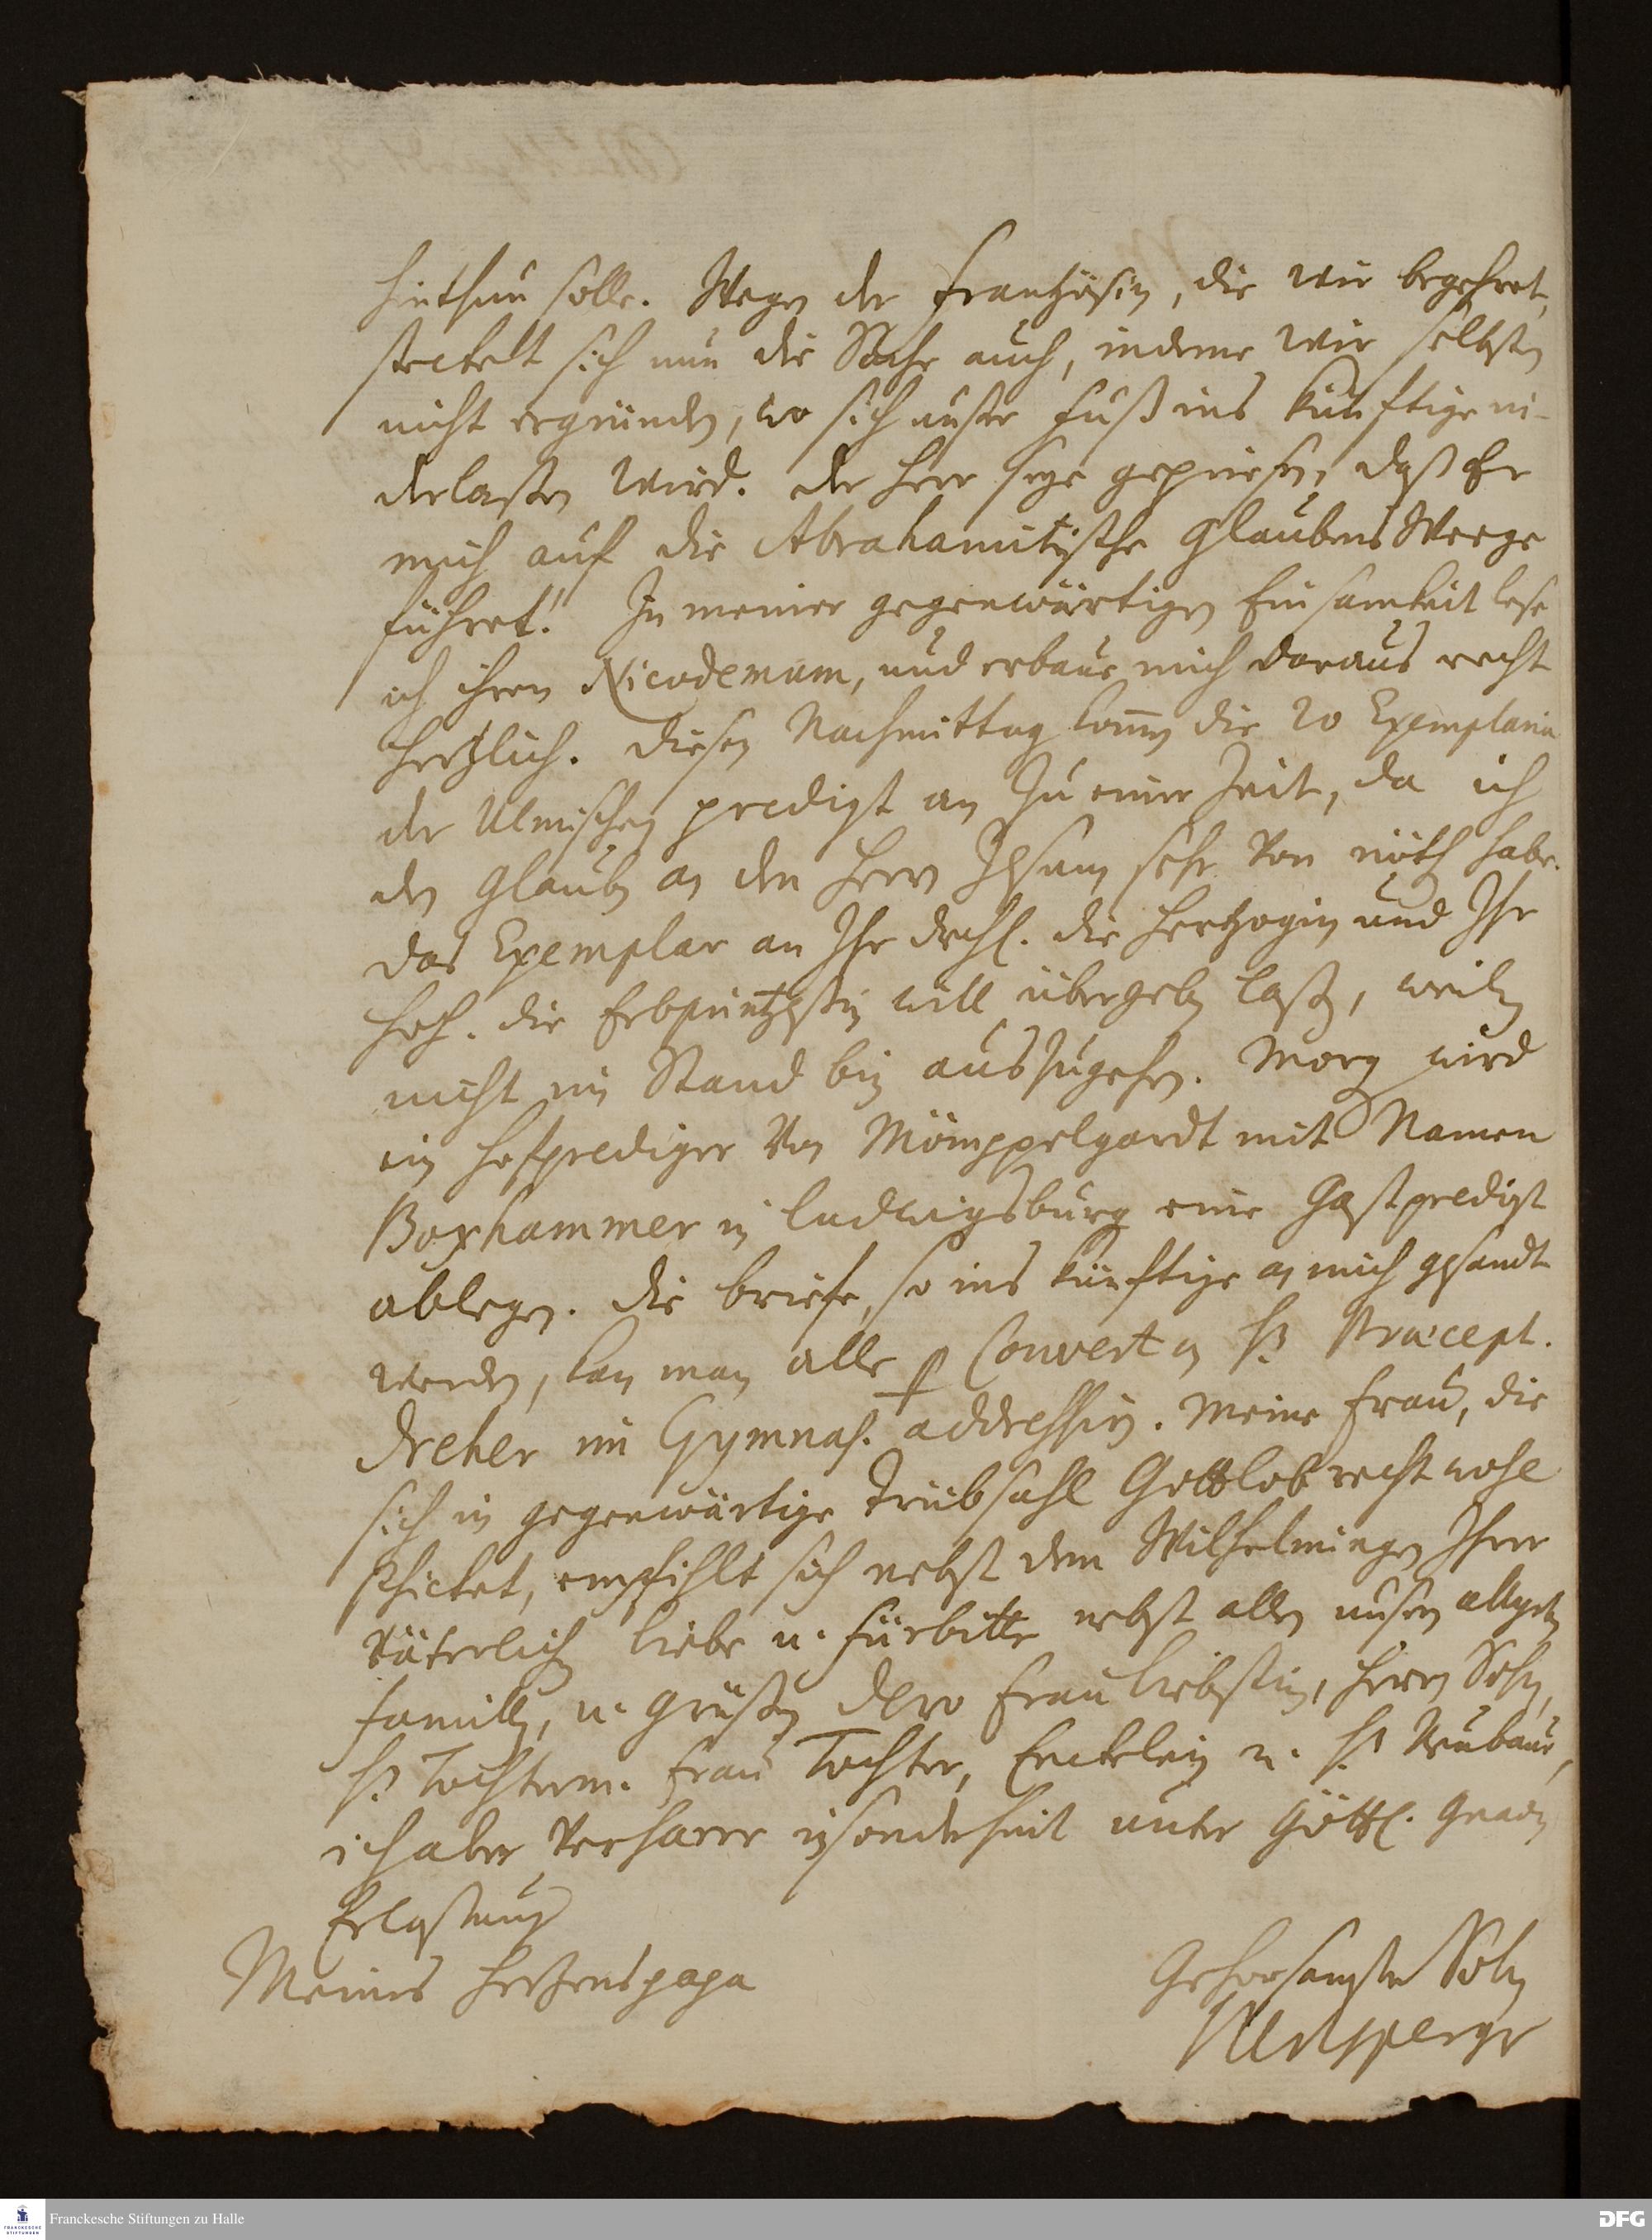 hinthun solle. Wegen der Frantzösin, die wir begehret,
stecket sich nun die Sache auch, indeme wir selbsten
nicht ergründen, wo sich unser Fuß ins künftige ni-
derlaßen wird. Der Herr seye gepriesen, daß Er
mich auf die Abrahamitische Glaubens Weege
führet! In meiner gegenwärtigen Einsamkeit lese
ich ihren Nicodemum, und erbaue mich daraus recht
hertzlich. Diesen Nachmittag komen die 20 Exemplaria
der Ulmischen predigt an Zu einer Zeit, da ich
den Glauben an den Herrn Jesum sehr von nöth habe.
Das Exemplar an Ihr drchl. die Hertzogin und Ihr
Hoh. die Erbprintzeßin will übergeben laßen, weilen
nicht im Stand bin auszugehen. Morgen wird
ein Hofprediger von Mömppelgardt mit Namen
Boxhammer in Ludwigsburg eine Gastpredigt
ablegen. Die briefe, so ins künftige an mich gesandt
werden, kan man alle p Couvert an H. Præcept.
Dreher im Gymnas. addressiren. Meine Frau, die
sich in gegenwärtige Trübsahl Gottlob recht wohl
schicket, empfihlt sich nebst dem Wilhelmingen Ihrer
väterlichen Liebe u. Fürbitte nebst allen unsern
familien, u. grüßen dero Frau Liebstin, Herrn Sohn,
H. Tochterm. Frau Tochter, Enckelein u. H. Neubauer,
ich aber verharre insonderheit unter Göttl. Gnaden
Erlaßung
Meines Hertzenspapa
Gehorsamster Sohn
Urlsperger
Franckesche Stiftungen zu Halle
DFG
FRANCKESCHE
STIFTUNGEN